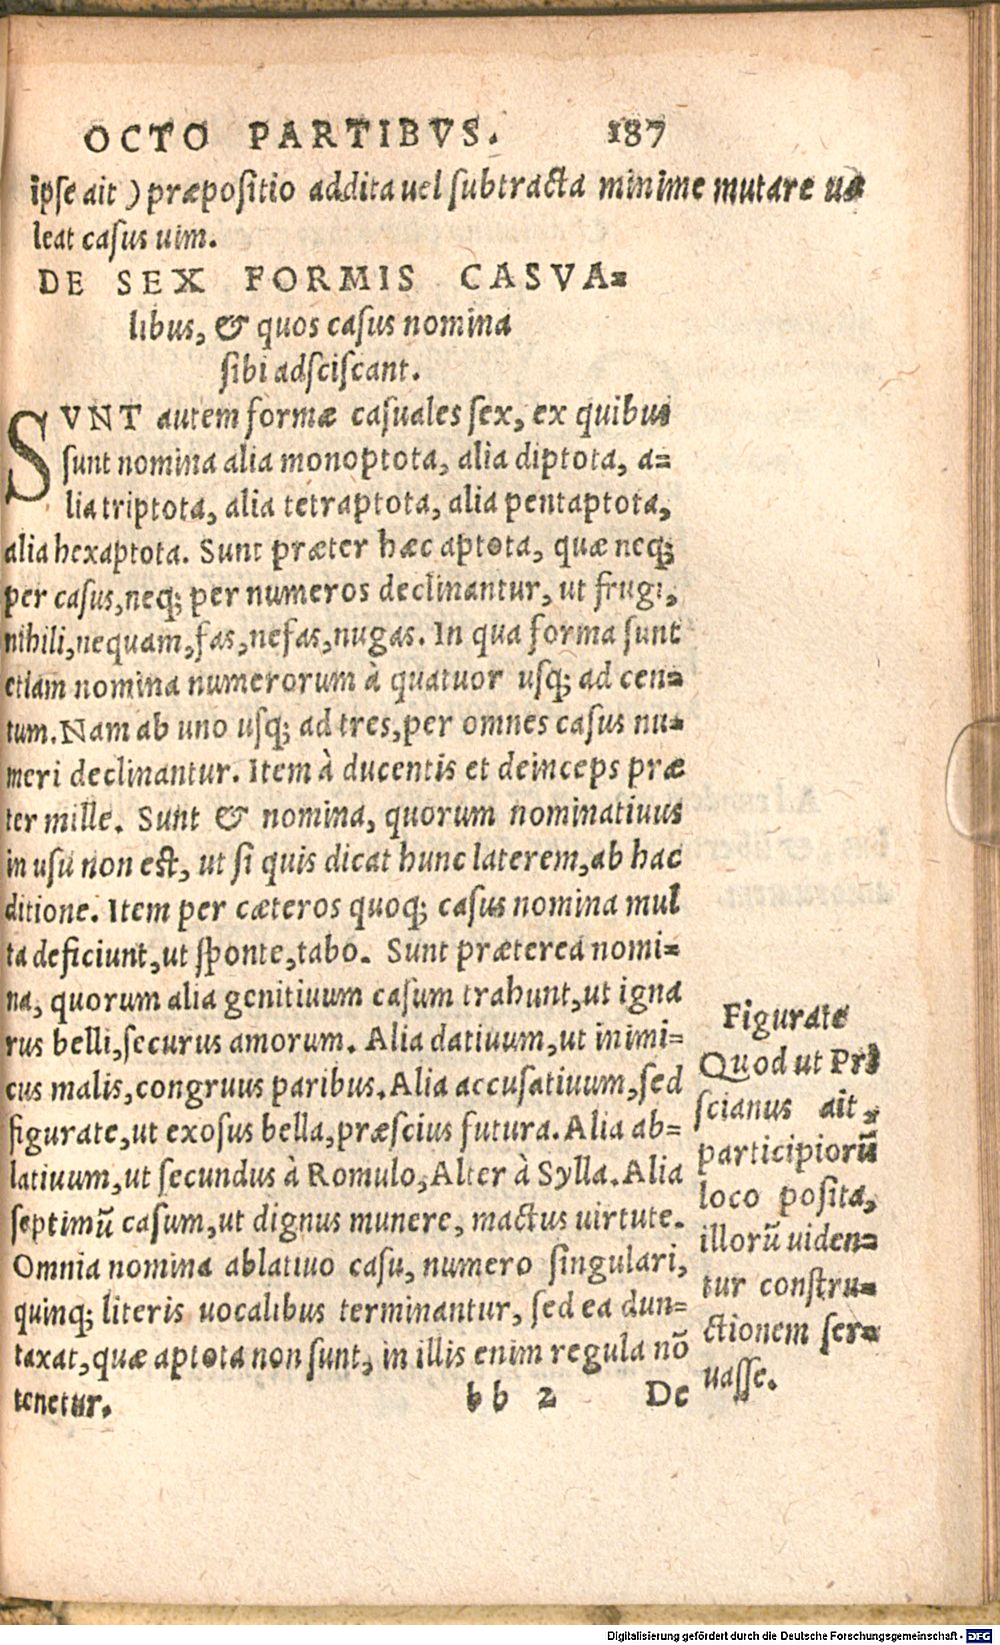 OCTO PARTIBVS. 187
ipse ait ) præpositio addita uel subtracta minime mutare ua
leat casus uim.
DE SEX FORMIS CASVA=
libus, & quos casus nomina
sibi adsciscant.
SVNT autem formæ casuales sex, ex quibus
sunt nomina alia monoptota, alia diptota, a=
lia triptota, alia tetraptota, alia pentaptota,
alia hexaptota. Sunt præter hæc aptota, quæ neq;
per casus, neq; per numeros declinantur, ut frugi,
nihili, nequam, fas, nefas, nugas. In qua forma sunt
etiam nomina numerorum à quatuor usq; ad cen=
tum. Nam ab uno usq; ad tres, per omnes casus nu=
meri declinantur. Item à ducentis et deinceps præ
ter mille. Sunt & nomina, quorum nominatiuus
in usu non est, ut si quis dicat hunc laterem, ab hac
ditione. Item per cæteros quoq; casus nomina mul
ta deficiunt, ut sponte, tabo. Sunt præterea nomi=
na, quorum alia genitiuum casum trahunt, ut igna
rus belli, securus amorum. Alia datiuum, ut inimi=
cus malis, congruus paribus. Alia accusatiuum, sed
figurate, ut exosus bella, præscius futura. Alia ab=
latiuum, ut secundus à Romulo, Alter à Sylla. Alia
septimũ casum, ut dignus munere, mactus uirtute.
Omnia nomina ablatiuo casu, numero singulari,
quinq; literis uocalibus terminantur, sed ea dun=
taxat, quæ aptota non sunt, in illis enim regula nõ
tenetur.
bb 2 De
Figurate
Quod ut Pri
scianus ait,
participiorũ
loco posita,
illorũ uiden=
tur constru=
ctionem ser=
uasse.
Digitalisierung gefördert durch die Deutsche Forschungsgemeinschaft - DFG